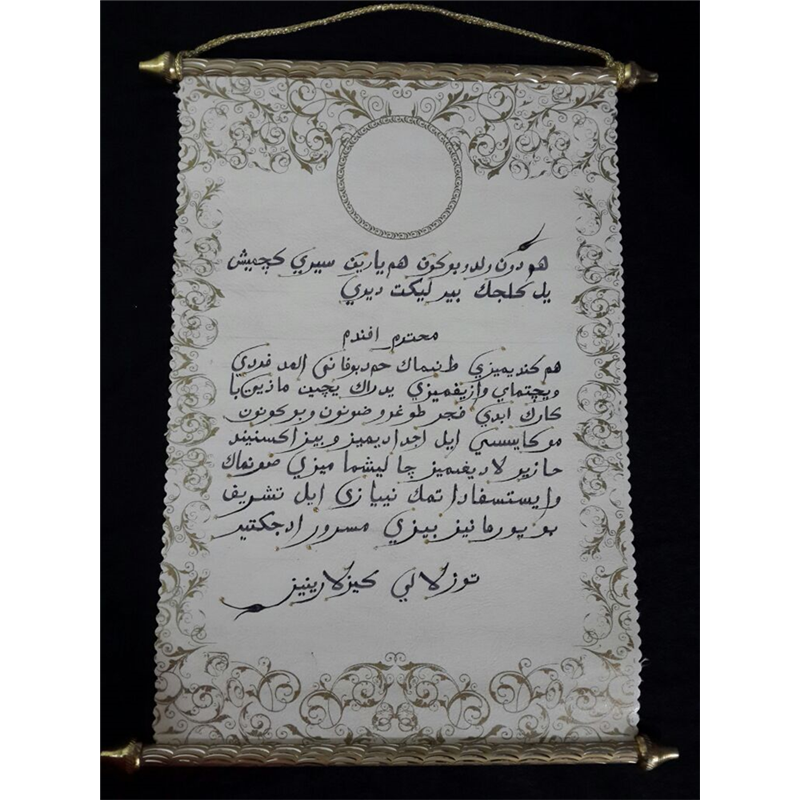 هو دون ولدو بو كون هم يارين سيري كچميش
يل كلجك بير ليكت ديري
محترم افندم
هم كنديميزي طنيماك حم دبوفاني المد
ويچتماي وازيفميزي يدراك يچين مازين با
كارك ابدي فجر طوغرو ضونون و بوكونون
موكايسسي ايل اجداديميز و بيز اكسنيند
حازيولاديغيميز چاليشماميزي صونماك
وايستسفادا تمك نييازي ايل تشريف
بويورمانيز بيزي مسرور ادجكتير
توزلالي كيزلارينيز